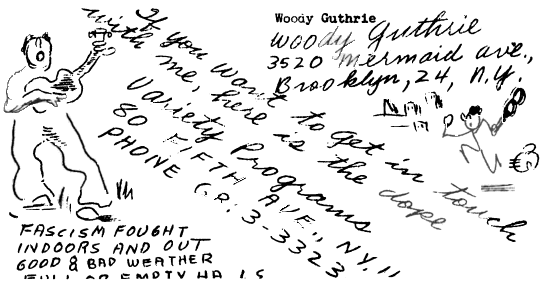 Woody Guthrie
Woody Guthrie
3520 Mermaid ave.,
Brooklyn, 24, N.Y.
If you want to get in touch
with me, here is the dope
Variety Programs
80 FIFTH AVE., NY. 11
PHONE GR. 3-3323
FASCISM FOUGHT
INDOORS AND OUT
GOOD & BAD WEATHER
FULL OR EMPTY HA LS